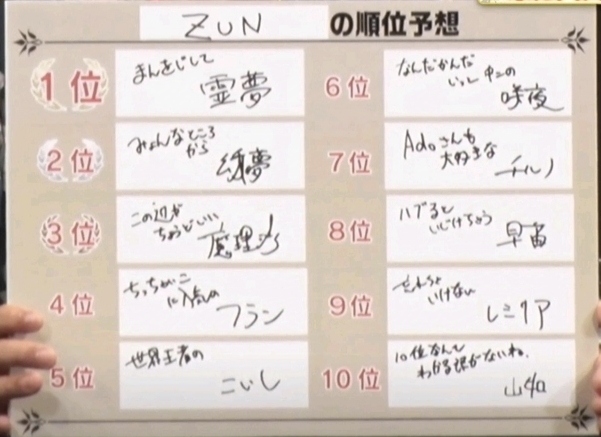 ZUN の順位予想
1位
まんをじして
霊夢
2位
みょんなところ
から
妖夢
3位
この辺が
ちょうどいい
魔理沙
4位
ちっちゃいこ
に人気の
フラン
5位
世界王者の
こいし
6位
なんだかんだ
いっ
咲夜
7位
Adoさんも
大好きな
チルノ
8位
ハブると
いじけちゃう
早苗
9位
いけない
レミリア
10位
10位なんて
わかる訳がないね。
山如